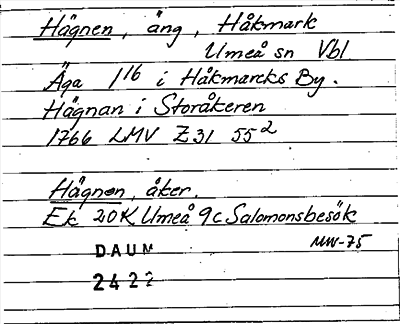 Hägnen, äng, Håkmark
Umeå sn Vbl
Äga 1¹⁶ i Håkmarcks By.
Hägnan i Storåkeren
1766 LMV Z31 55²
Hägnen, åker.
Ek 20K Umeå 9c Salomonsbesök
MW-75
DAUM
2422